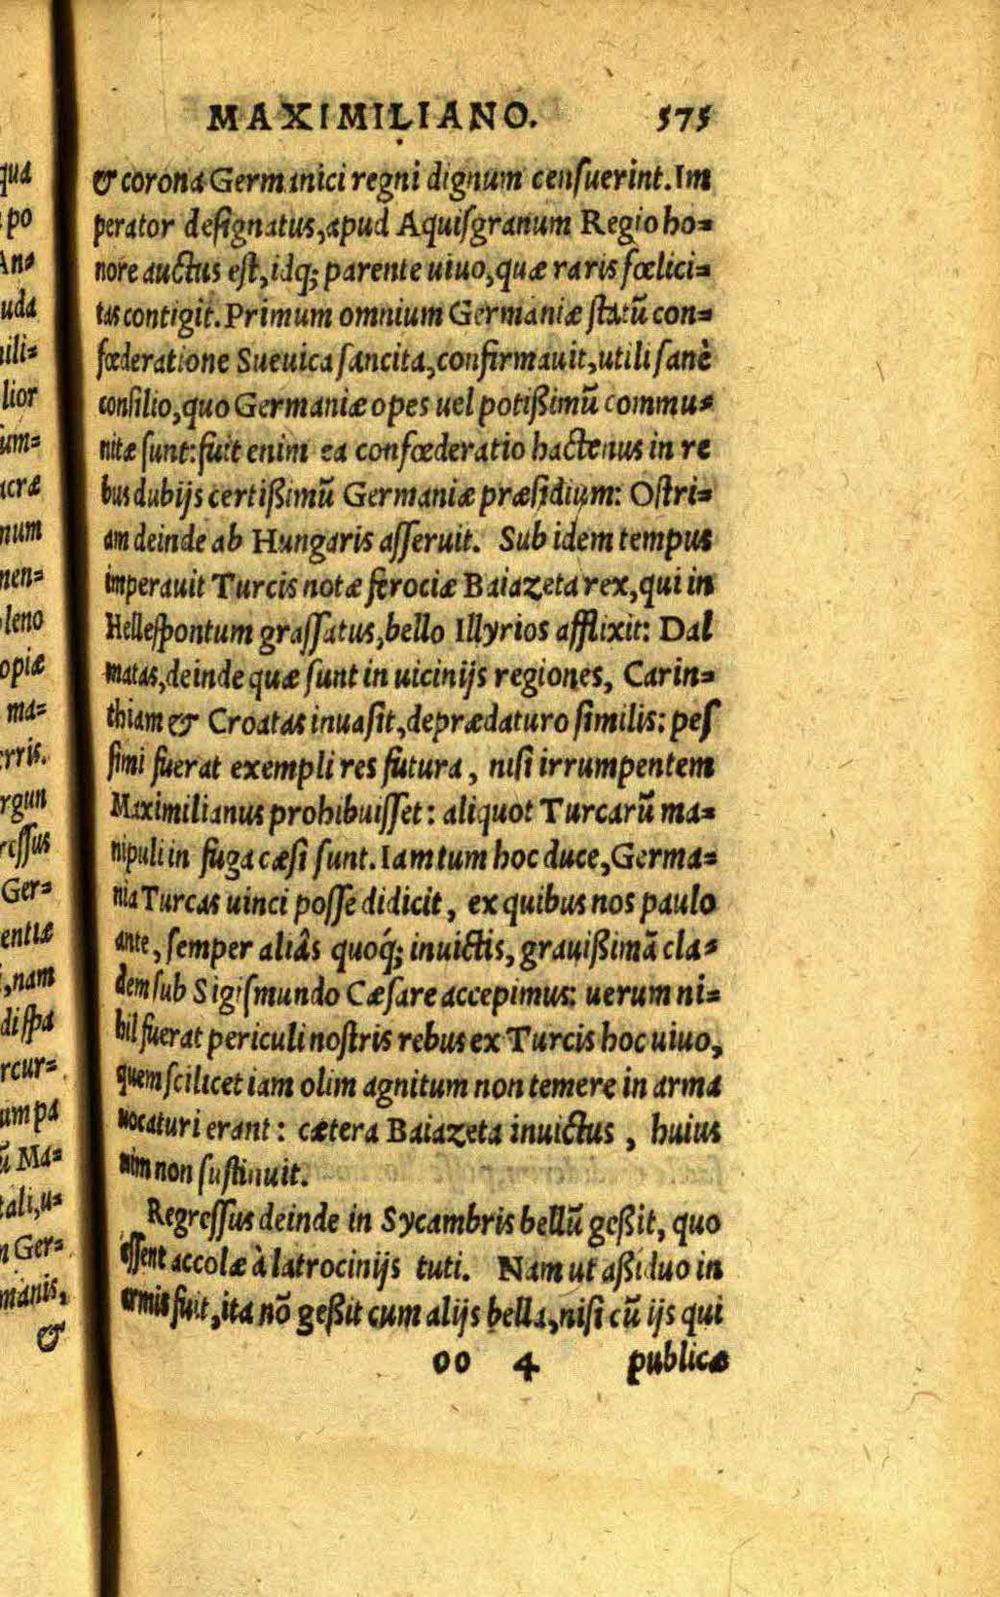 MAXIMILIANO. 575
& corona Germanici regni dignum censuerint. Im
perator designatus, apud Aquisgranum Regio ho=
nore auctus est, idq; parente uiuo, quæ raris fœlici=
tas contigit. Primum omnium Germaniæ statū con=
fœderatione Sueuica sancita, confirmauit, utili sanè
consilio, quo Germaniæ opes uel potißimū commu=
nitæ sunt: fuit enim ea confœderatio hactenus in re
bus dubijs certißimū Germaniæ præsidium: Ostri=
am deinde ab Hungaris asseruit. Sub idem tempus
imperauit Turcis notæ ferociæ Baiazeta rex, qui in
Hellespontum grassatus, bello Illyrios afflixit: Dal
matas, deinde quæ sunt in uicinijs regiones, Carin=
thiam & Croatas inuasit, deprædaturo similis: pes
simi fuerat exempli res futura, nisi irrumpentem
Maximilianus prohibuisset: aliquot Turcarū ma=
nipuli in fuga cæsi sunt. Iam tum hoc duce, Germa=
nia Turcas uinci posse didicit, ex quibus nos paulo
ante, semper aliâs quoq́; inuictis, grauißimā cla=
dem sub Sigismundo Cæsare accepimus: uerum ni=
hil fuerat periculi nostris rebus ex Turcis hoc uiuo,
quem scilicet iam olim agnitum non temere in arma
uocaturi erant: cætera Baiazeta inuictus, huius
uim non sustinuit.
Regressus deinde in Sycambris bellū geßit, quo
essent accolæ à latrocinijs tuti. Nam ut aßiduo in
armis fuit, ita nō geßit cum alijs bella, nisi cū ijs qui
oo 4 publicæ
qua
po
An=
uda
ili=
lior
um=
acræ
num
nen=
leno
opiæ
ma=
rris.
rgun
ressus
Ger=
entiæ
, nam
dispa
rcur=
um pa
ū Ma=
tali, u=
n Ger=
manis,
&